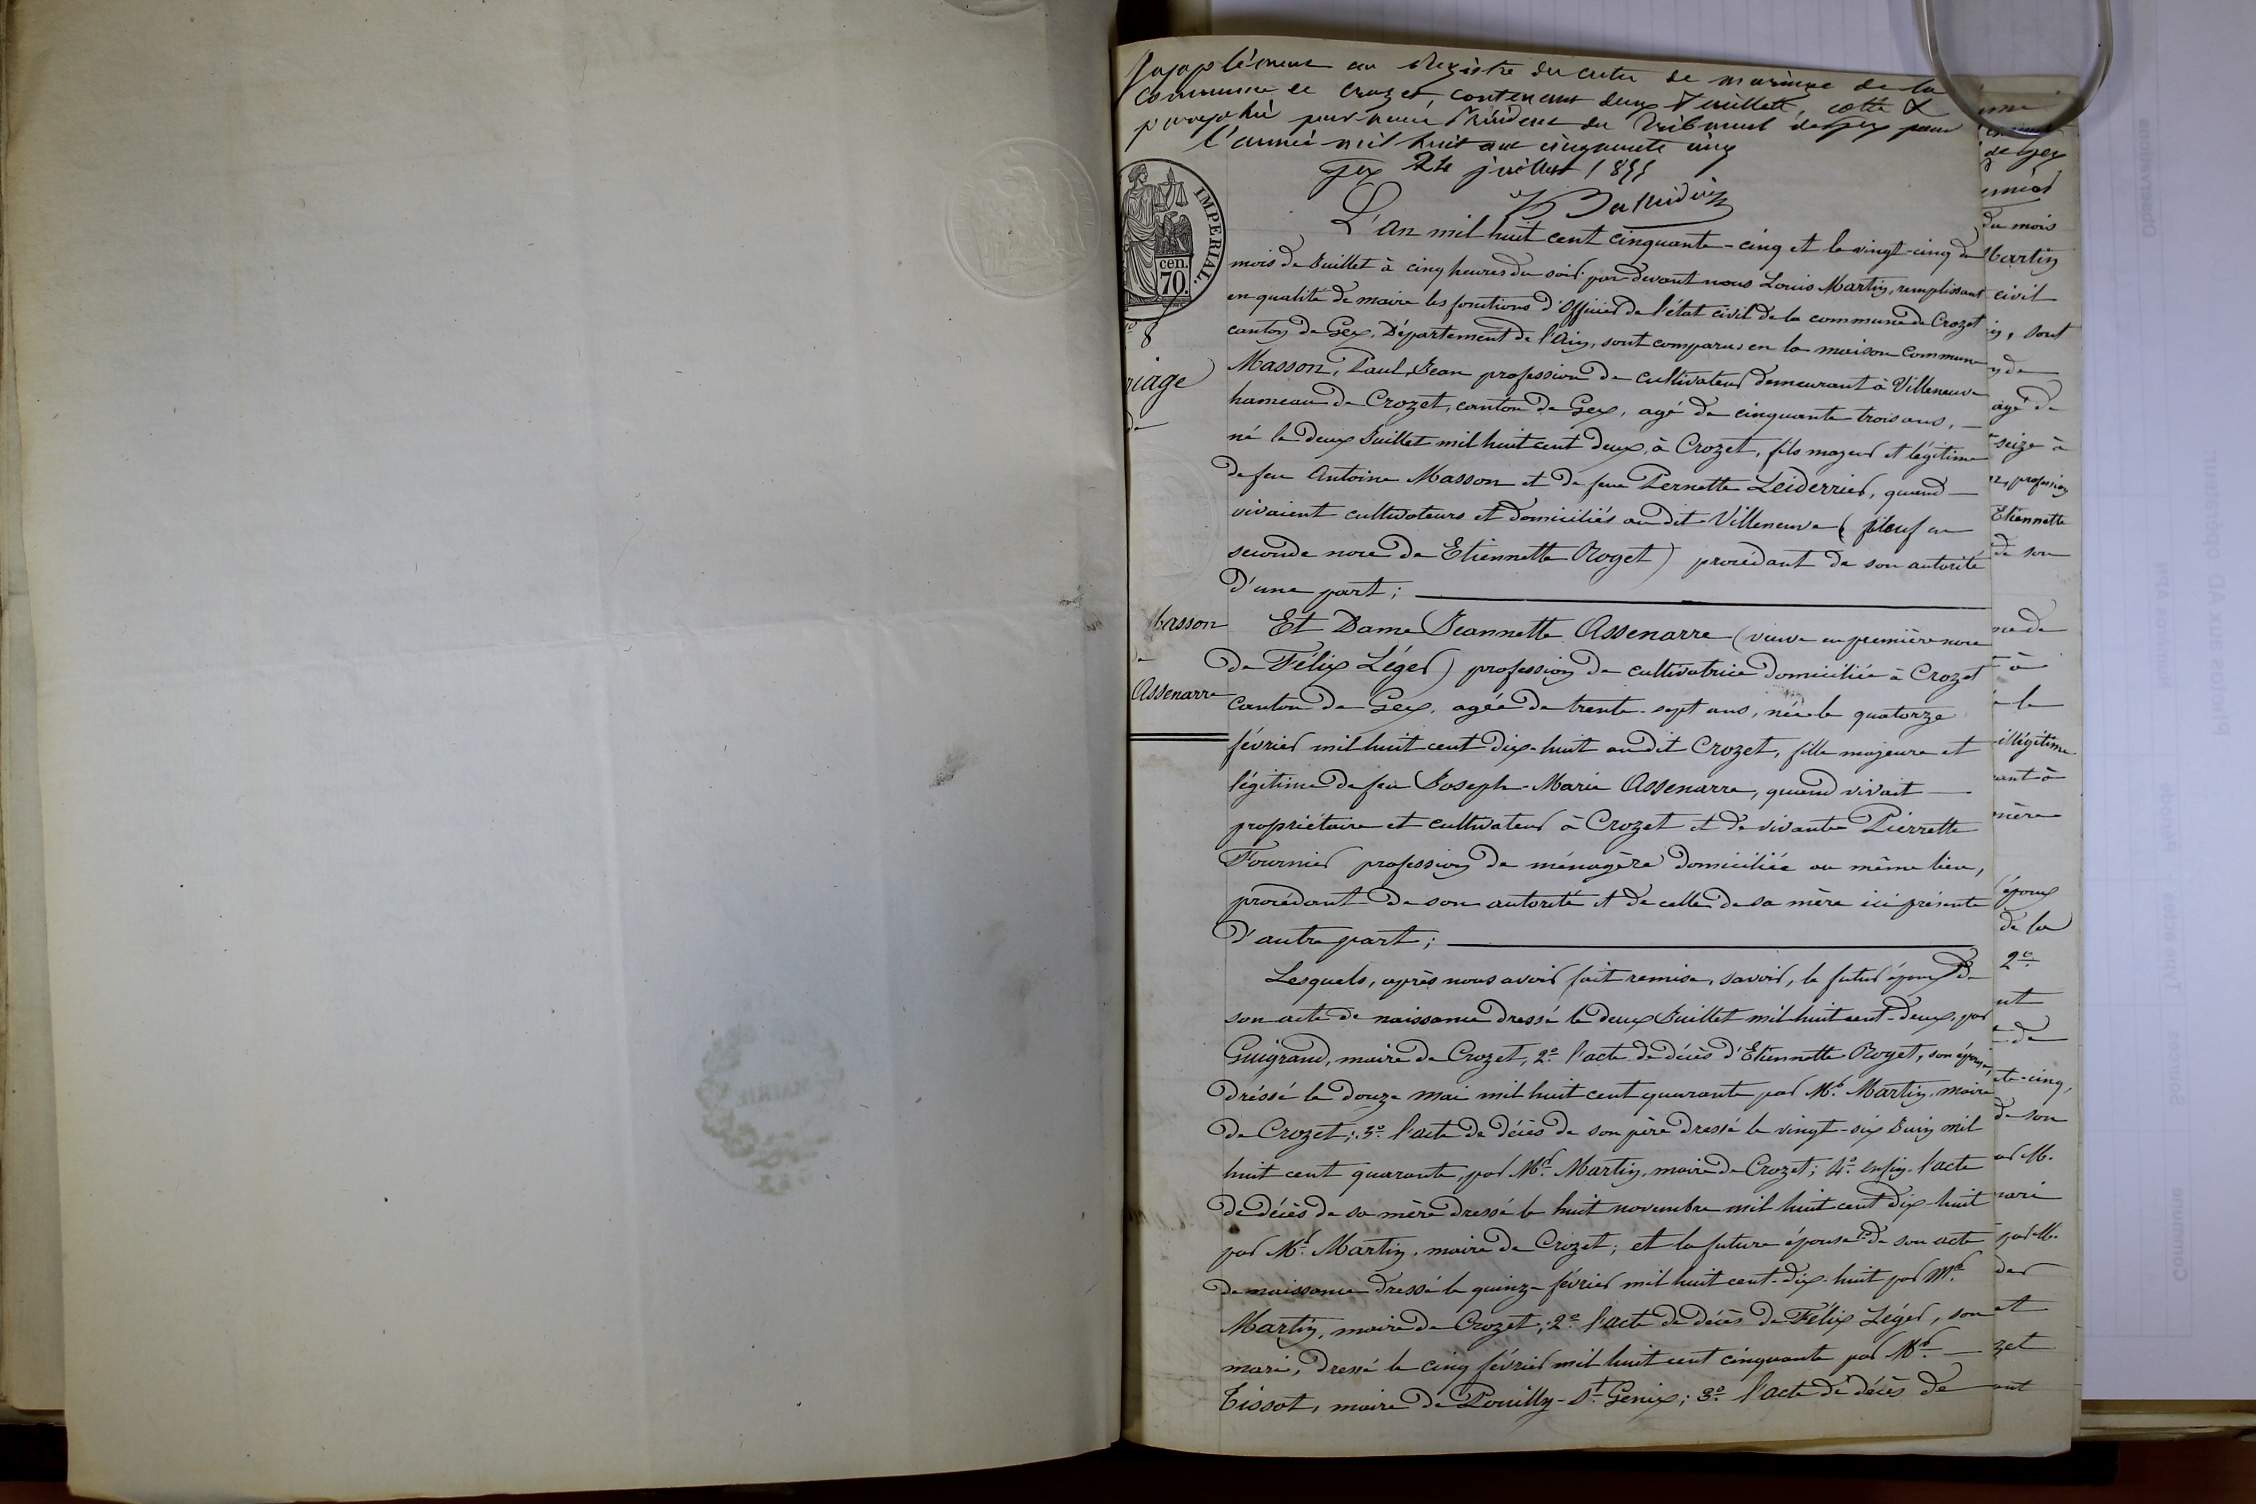 Supplément au Registre des actes de mariage de la
commune de Crozet, contenant deux feuillets, cotté &
paraphé par nous Président du Tribunal de Gex pour
l'année mil huit cent cinquante cinq
Gex 24 juillet 1855
IMPERIAL.
cen.
70.
8
L'an mil huit cent cinquante-cinq et le vingt-cinq du
mois de Juillet à cinq heures du soir par devant nous Louis Martin, remplissant
en qualité de maire les fonctions d'Officier de l'état civil de la commune de Crozet
canton de Gex, Département de l'Ain, sont comparus en la maison commune
riage
Masson, Paul, Jean profession de cultivateur demeurant à Villeneuve
hameau de Crozet, canton de Gex, agé de cinquante trois ans, —
de
né le deux Juillet mil huit cent deux, à Crozet, fils majeur et légitime
de feu Antoine Masson et de feue Pernette Leiderrier, quand —
vivaient cultivateurs et domiciliés au dit Villeneuve ( en
seconde noce de Etiennette Roget) procédant de son autorité
D'une part ; —
Masson
Et Dame Jeannette Assenarre (veuve en première noce
de
de Félix Léger) profession de cultivatrice domiciliée à Crozet
Assenarre
canton de Gex, agée de trente-sept ans, née le quatorze
février mil huit cent dix-huit au dit Crozet, fille majeure et
légitime de feu Joseph-Marie Assenarre, quand vivait —
propriétaire et cultivateur à Crozet et de vivante Pierrette
Fournier profession de ménagère domiciliée au même lieu,
procédant de son autorité et de celle de sa mère ici présente
D'autre part ; —
Lesquels, après nous avoir fait remise, savoir, le futur époux de
son acte de naissance dressé le deux Juillet mil huit cent-deux, par
Guigrand, maire de Crozet, 2º l'acte de décès d'Etiennette Roget, son épouse,
dréssé le douze mai mil huit cent quarante par Mr. Martin, maire
de Crozet; 3º l'acte de décès de son père dressé le vingt-six Juin mil
huit cent quarante, par Mr. Martin, maire de Crozet; 4º enfin l'acte
de décès de sa mère dressé le huit novembre mil huit cent dix-huit
par Mr. Martin, maire de Crozet; et la future épouse 1º de son acte
de naissance dressé le quinze février mil huit cent-dix-huit par Mr.
Martin, maire de Crozet; 2º l'acte de décès de Félix Léger, son
mari, dressé le cinq février mil huit cent cinquante par Mr. —
Tissot, maire de Pouilly-St. Genix; 3º l'acte de décès de
de Gex
du mois
Martin
civil
in, sont
y de
agé de
seize à
profession
Etiennette
de son
ne de
à
le
illégitime
ant à
mère
époux
de la
2º
et
de
te-cinq,
de son
ar M.
mari
par M.
der
et
zet
ant
MAIRIE
GEX